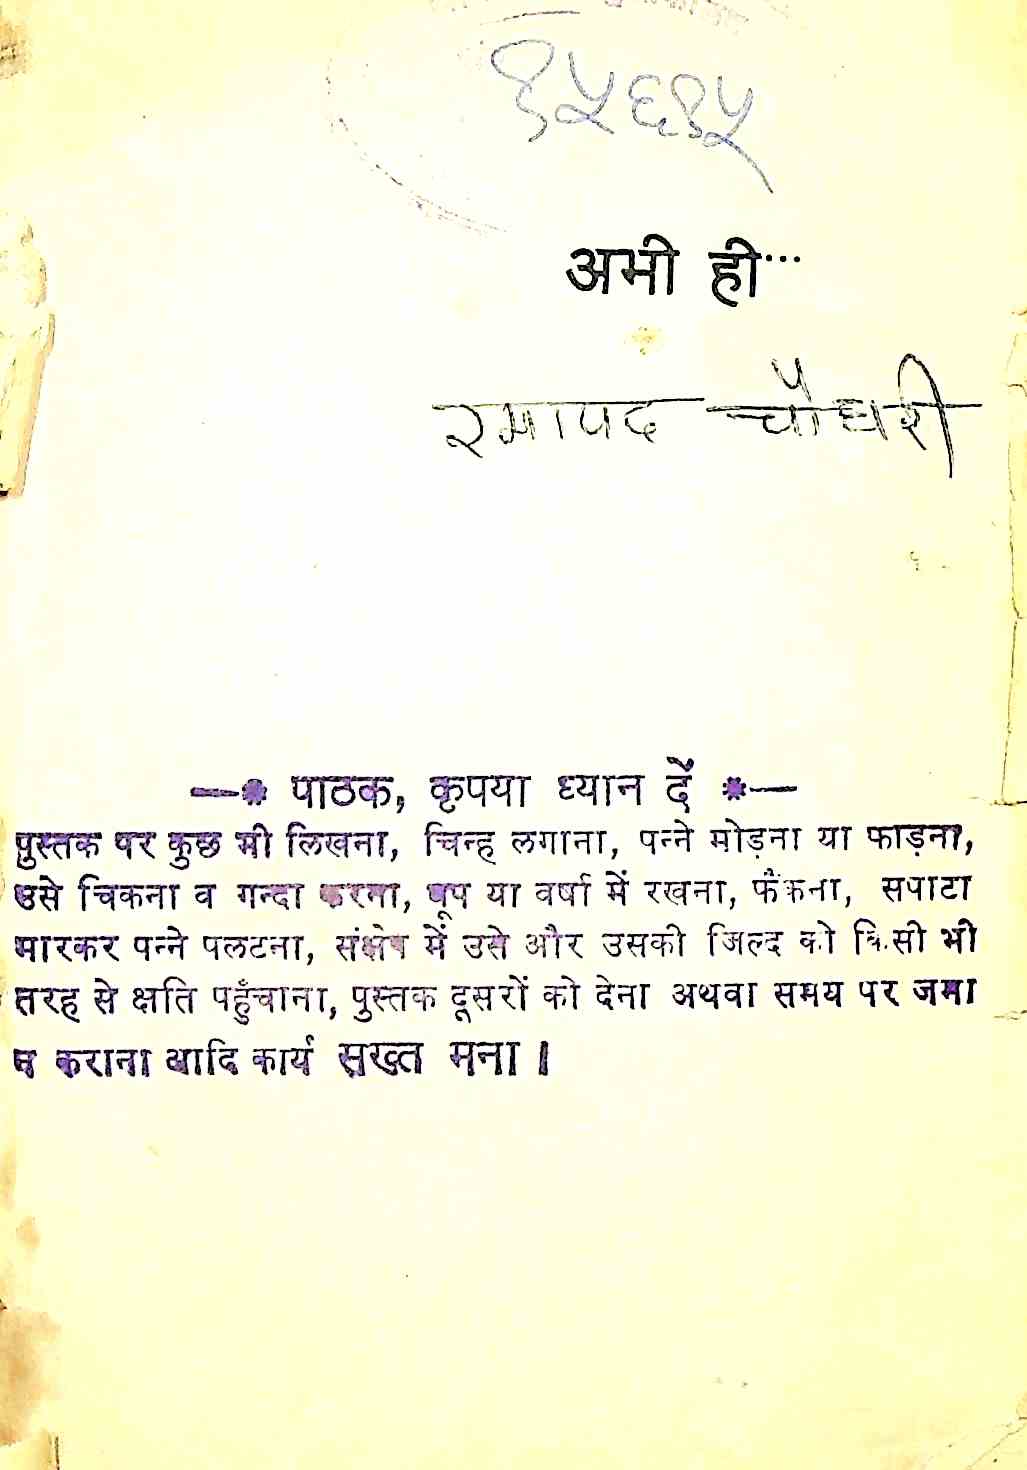 १५६१५
अभी ही...
रमापद चौधरी
—* पाठक, कृपया ध्यान दें *—
पुस्तक पर कुछ भी लिखना, चिन्ह लगाना, पन्ने मोड़ना या फाड़ना,
उसे चिकना व गन्दा करना, धूप या वर्षा में रखना, फेंकना, सपाटा
मारकर पन्ने पलटना, संक्षेप में उसे और उसकी जिल्द को किसी भी
तरह से क्षति पहुँचाना, पुस्तक दूसरों को देना अथवा समय पर जमा
न कराना आदि कार्य सख्त मना ।